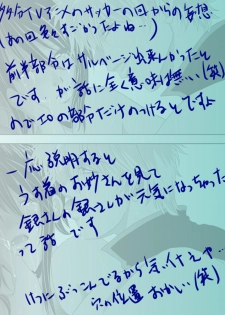 タタタTVアニメのサッカーの回からの妄想
(あの回見てすごかったよね…)
前半部分はサルベージ出来んかったと
です が話に全く意味は無い(笑)
のでエロの部分だけのっけるとですよ
一応説明すると
うす着のお妙さんを見て
銀さんの銀さんが元気になっちゃった
って話 です
いつにぶっこんでるから気イナ
穴の位置 おかしい(笑)